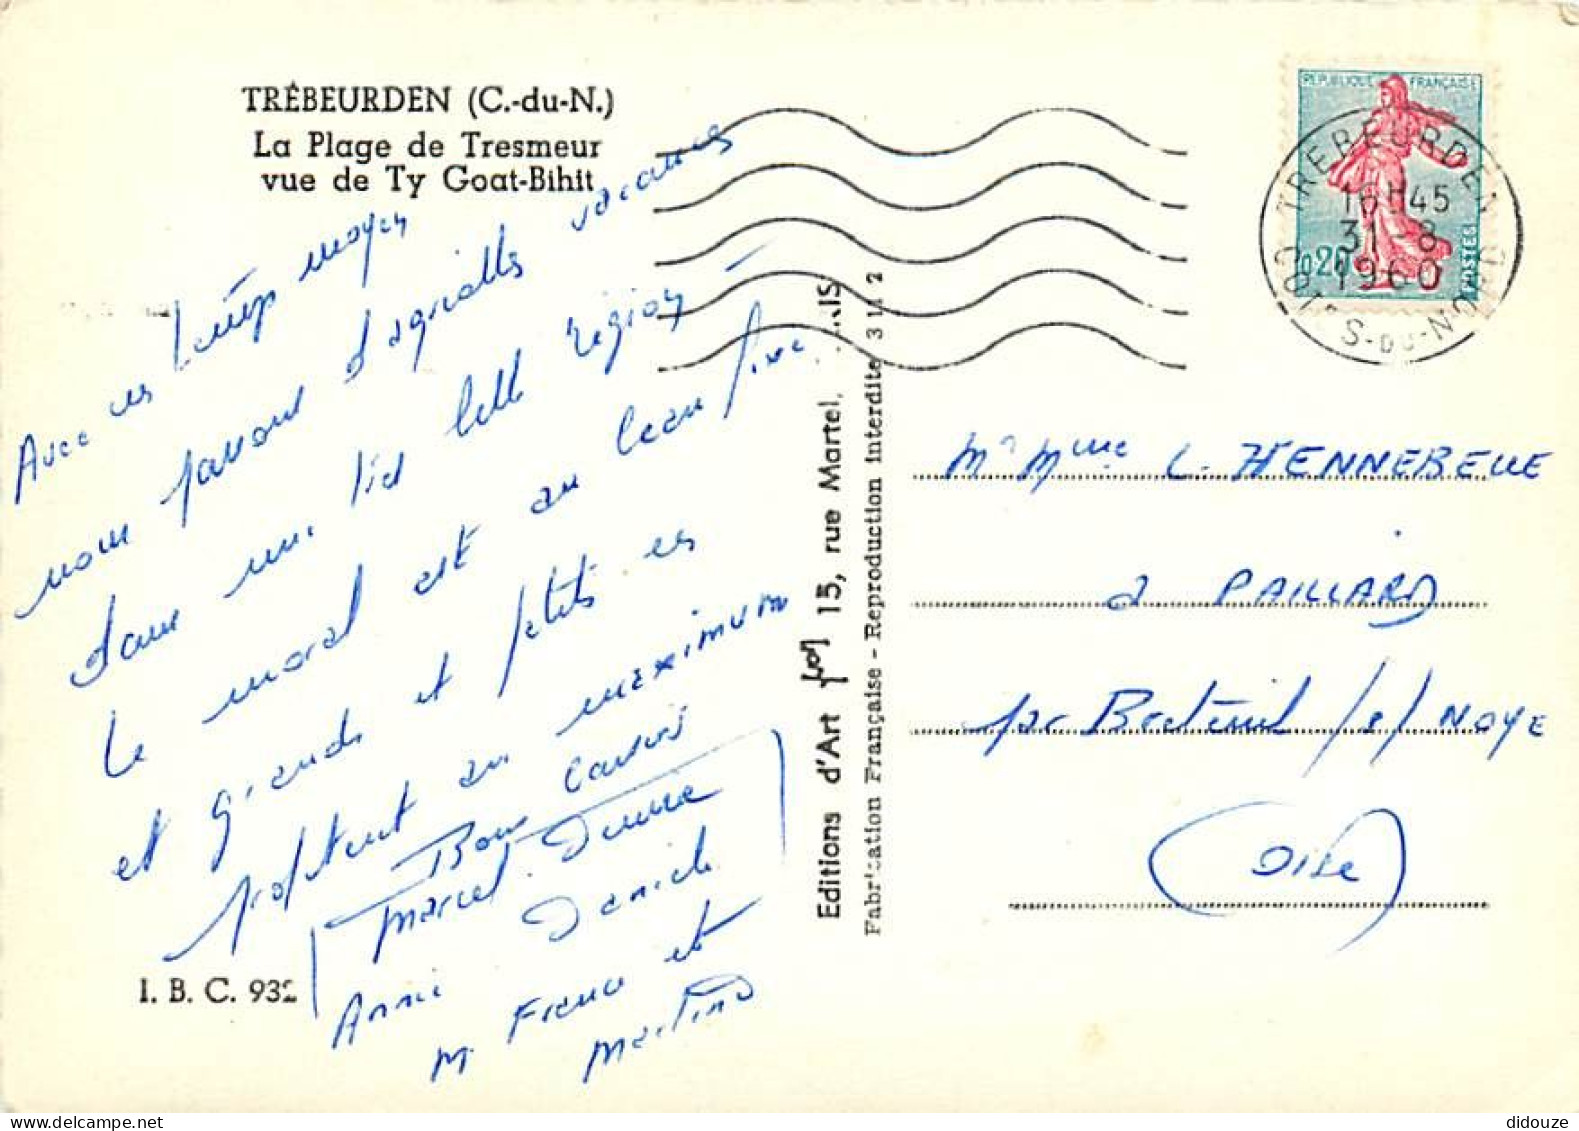 TRÉBEURDEN (C.-du-N.)
La Plage de Tresmeur
vue de Ty Goat-Bihit
Avec un temps moyen
nous passons d'agréables vacances
dans une très belle région
Le moral est au beau fixe
et grands et petits en
profitent au maximum
Bons baisers
Marcel Denise
Annie Daniele
M. France et
Martine
I. B. C. 932
Editions d'Art Yvon 15, rue Martel,
Fabrication Française - Reproduction interdite 3 11 2
REPUBLIQUE FRANÇAISE
0,20
POSTES
TREBEURDEN
16H45
31-8
1960
COTES-DU-NORD
Mr Mme L. HENNEBELLE
à PAILLARD
par Breteuil /s/ NOYE
(Oise)
didouze